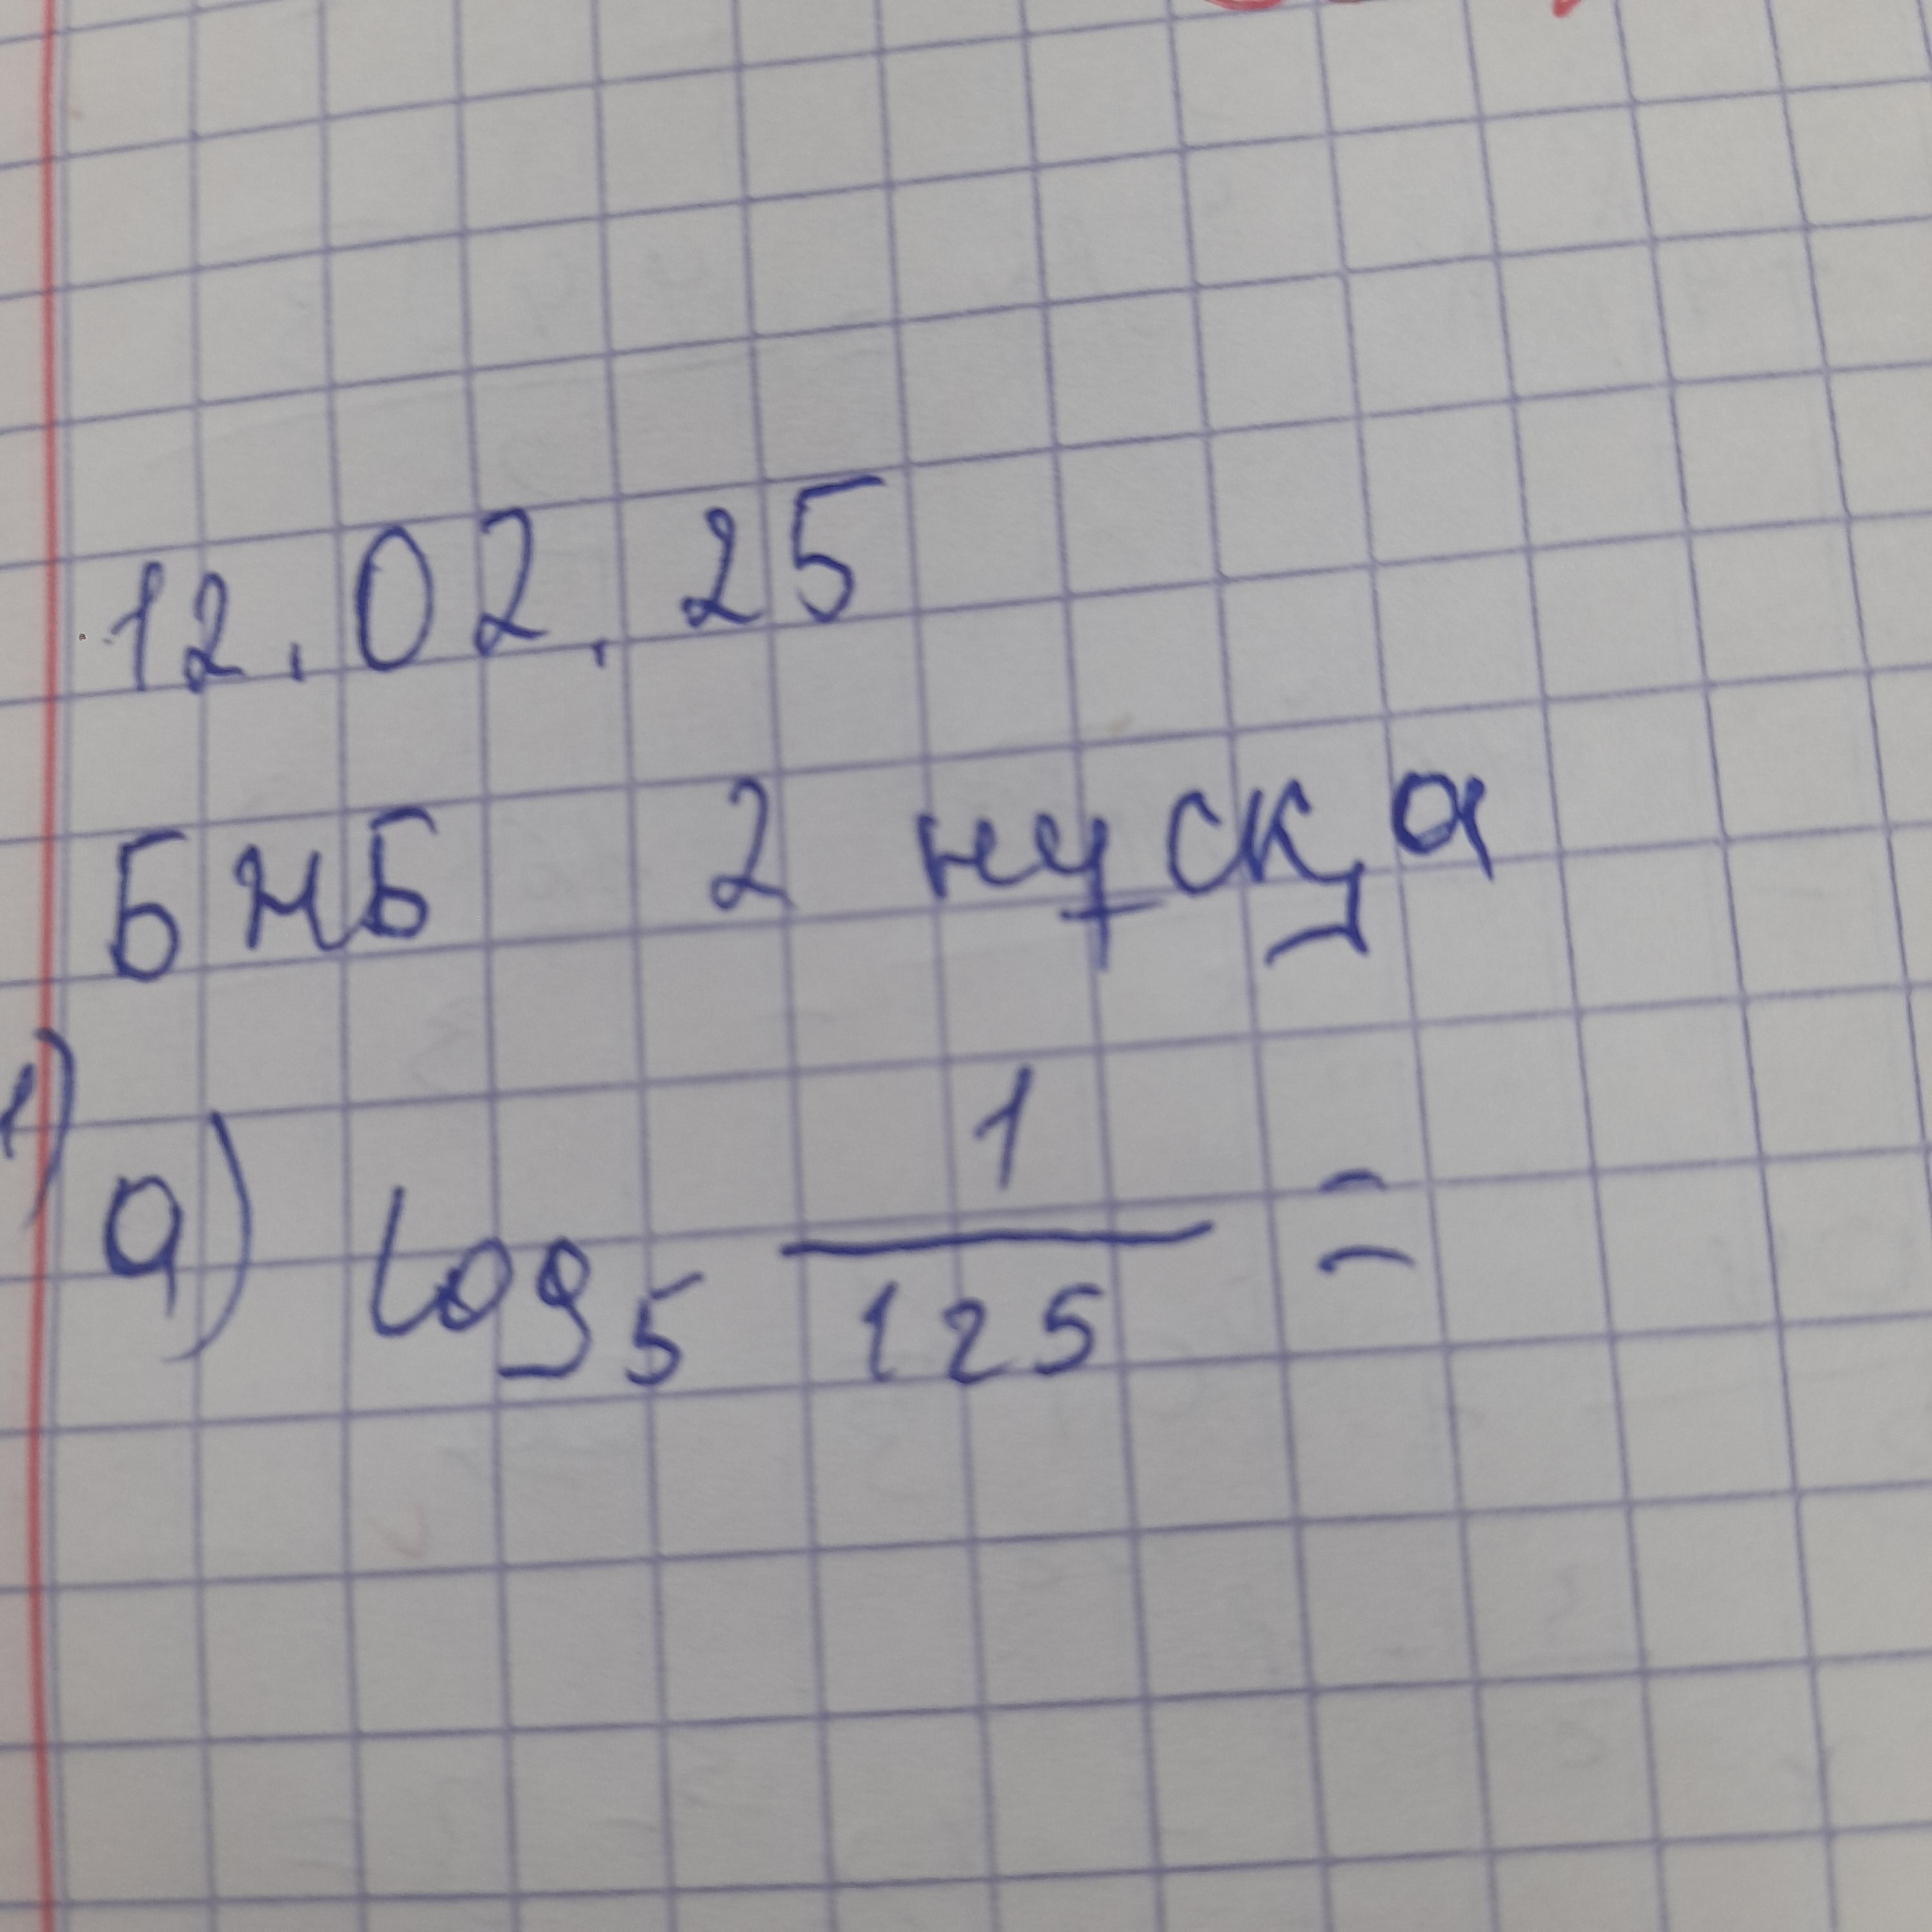 12.02.25
БжБ 2 нұсқа
1)
а) log₅ 1/125 =